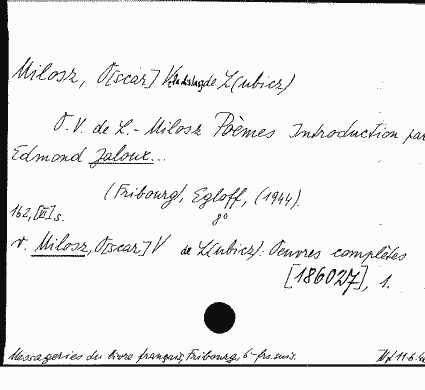 Milosz, O[scar] V[ladislas] de L(ubicz)
O.V. de L.-Milosz Poèmes Introduction par
Edmond Jaloux...
(Fribourg), Egloff, (1944).
162, [III] s. 8°
v. Milosz, O[scar] V de L(ubicz): Oeuvres complètes
[186027], 1.
Messageries du livre français, Fribourg, 6.- frs. suis.
11.6.